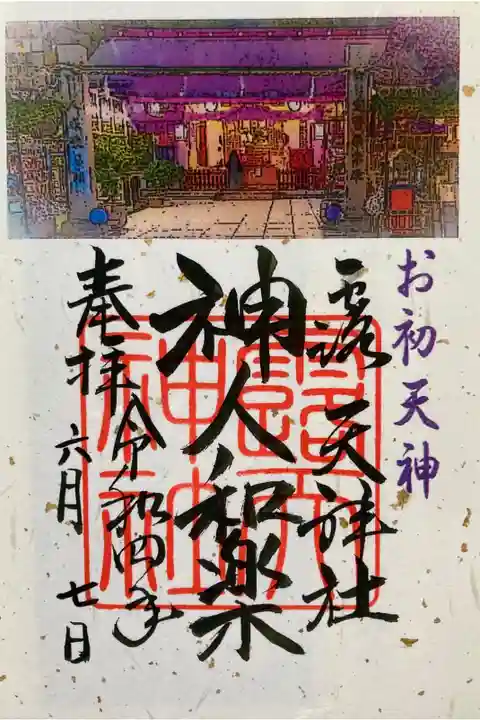 お初天神
露天神社
神人和楽
奉拝
令和四年
六月
七日